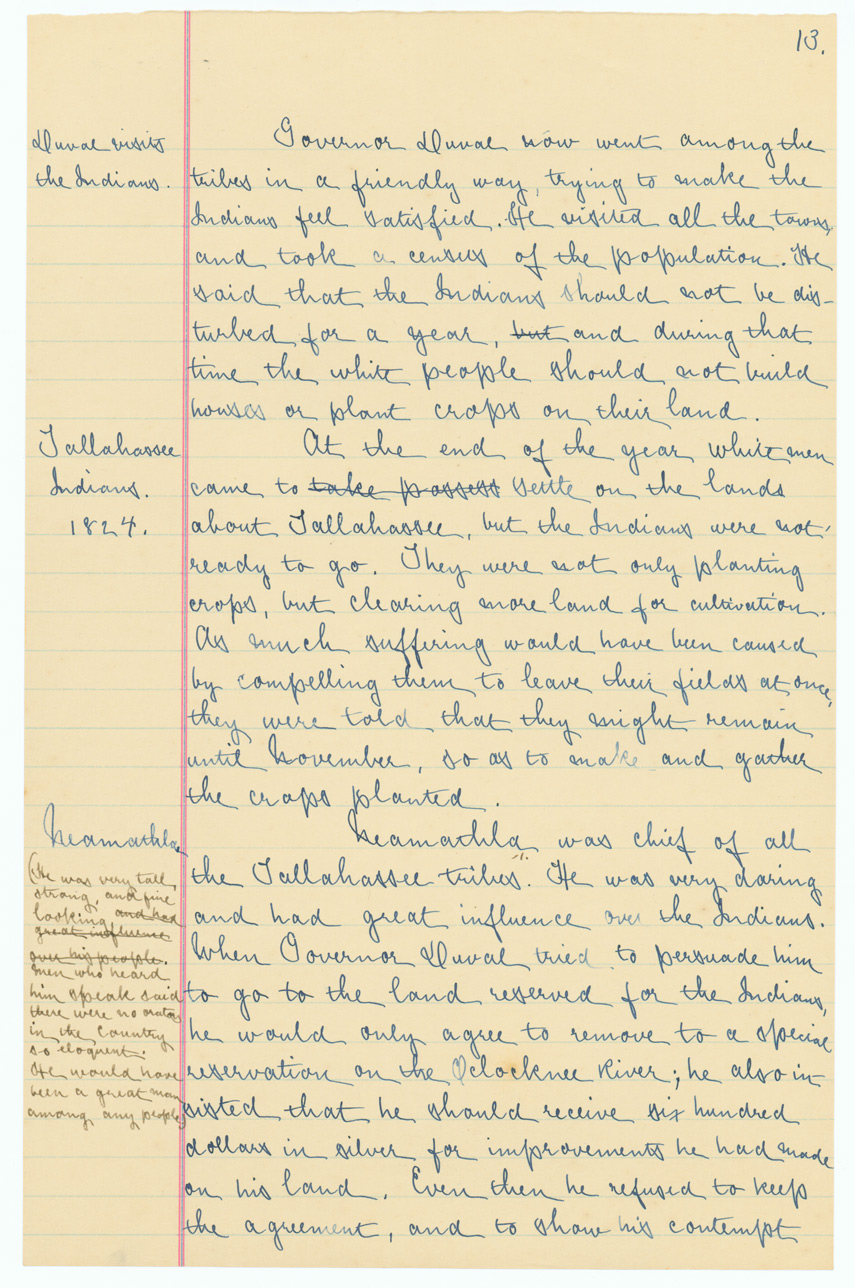 13.
Duval visits
the Indians.
Governor Duval now went among the
tribes in a friendly way, trying to make the
Indians feel satisfied. He visited all the towns,
and took a census of the population. He
said that the Indians should not be dis-
turbed for a year, but and during that
time the white people should not build
houses or plant crops on their land.
Tallahassee
Indians.
1824.
At the end of the year white men
came to take possess settle on the lands
about Tallahassee, but the Indians were not
ready to go. They were not only planting
crops, but clearing more land for cultivation.
As much suffering would have been caused
by compelling them to leave their fields at once,
they were told that they might remain
until November, so as to make and gather
the crops planted.
Neamathla
(He was very tall,
strong, and fine
looking, and had
great influence
over his people.
Men who heard
him speak said
there were no orators
in the country
so eloquent.
He would have
been a great man
among any people)
Neamathla was chief of all
the Tallahassee tribes. He was very daring
and had great influence over the Indians.
When Governor Duval tried to persuade him
to go to the land reserved for the Indians,
he would only agree to remove to a special
reservation on the Oclocknee River; he also in-
sisted that he should receive six hundred
dollars in silver for improvements he had made
on his land. Even then he refused to keep
the agreement, and to show his contempt